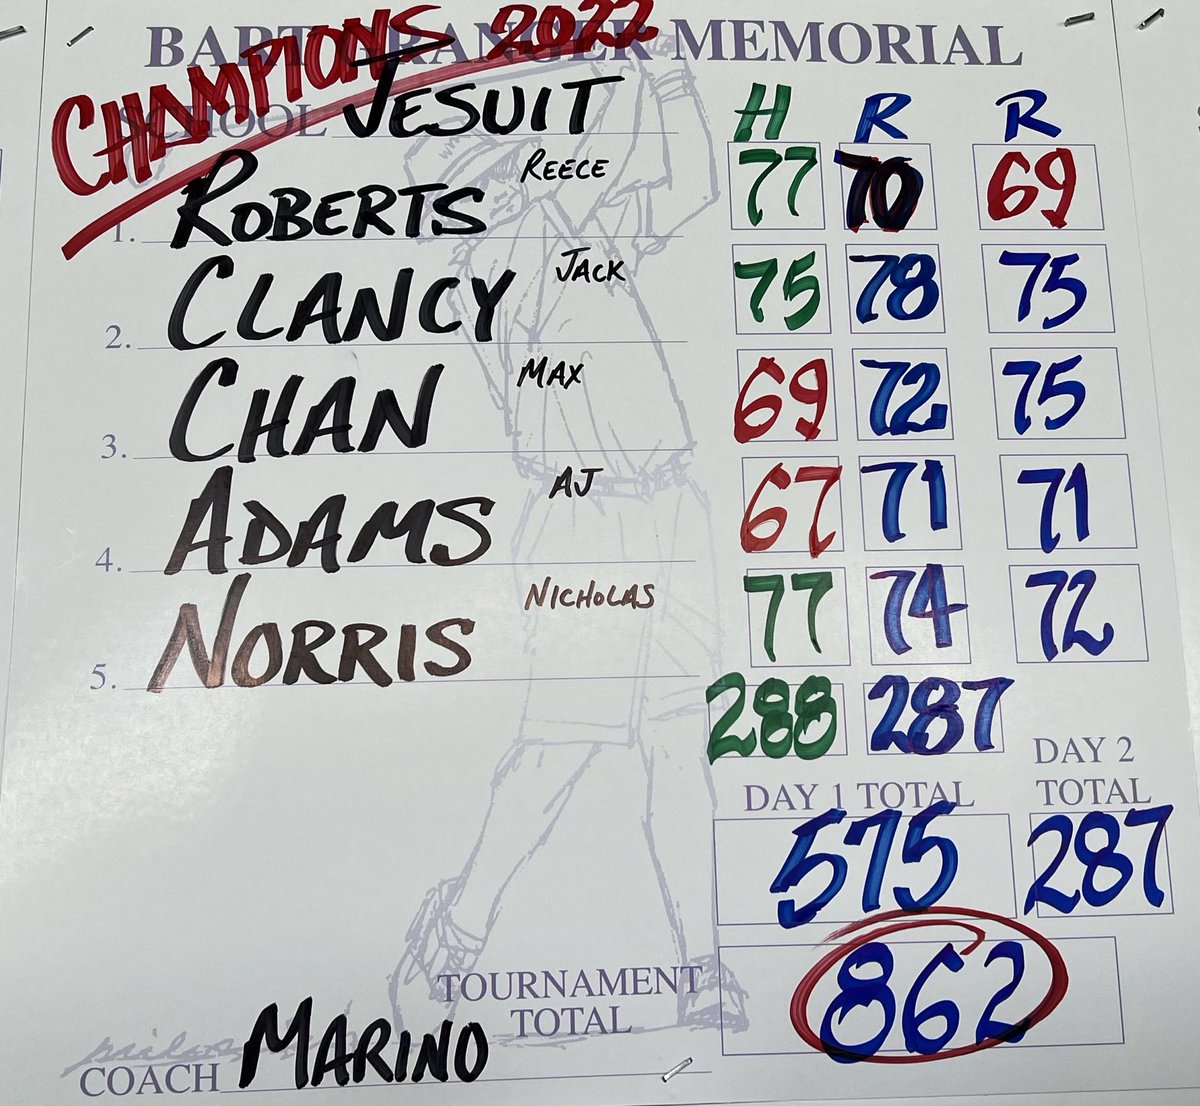 BART GRANGER MEMORIAL
CHAMPIONS 2022
SCHOOL JESUIT H R R
1. ROBERTS REECE 77 70 69
2. CLANCY JACK 75 78 75
3. CHAN MAX 69 72 75
4. ADAMS AJ 67 71 71
5. NORRIS NICHOLAS 77 74 72
288 287
DAY 1 TOTAL DAY 2 TOTAL
575 287
TOURNAMENT TOTAL 862
COACH MARINO